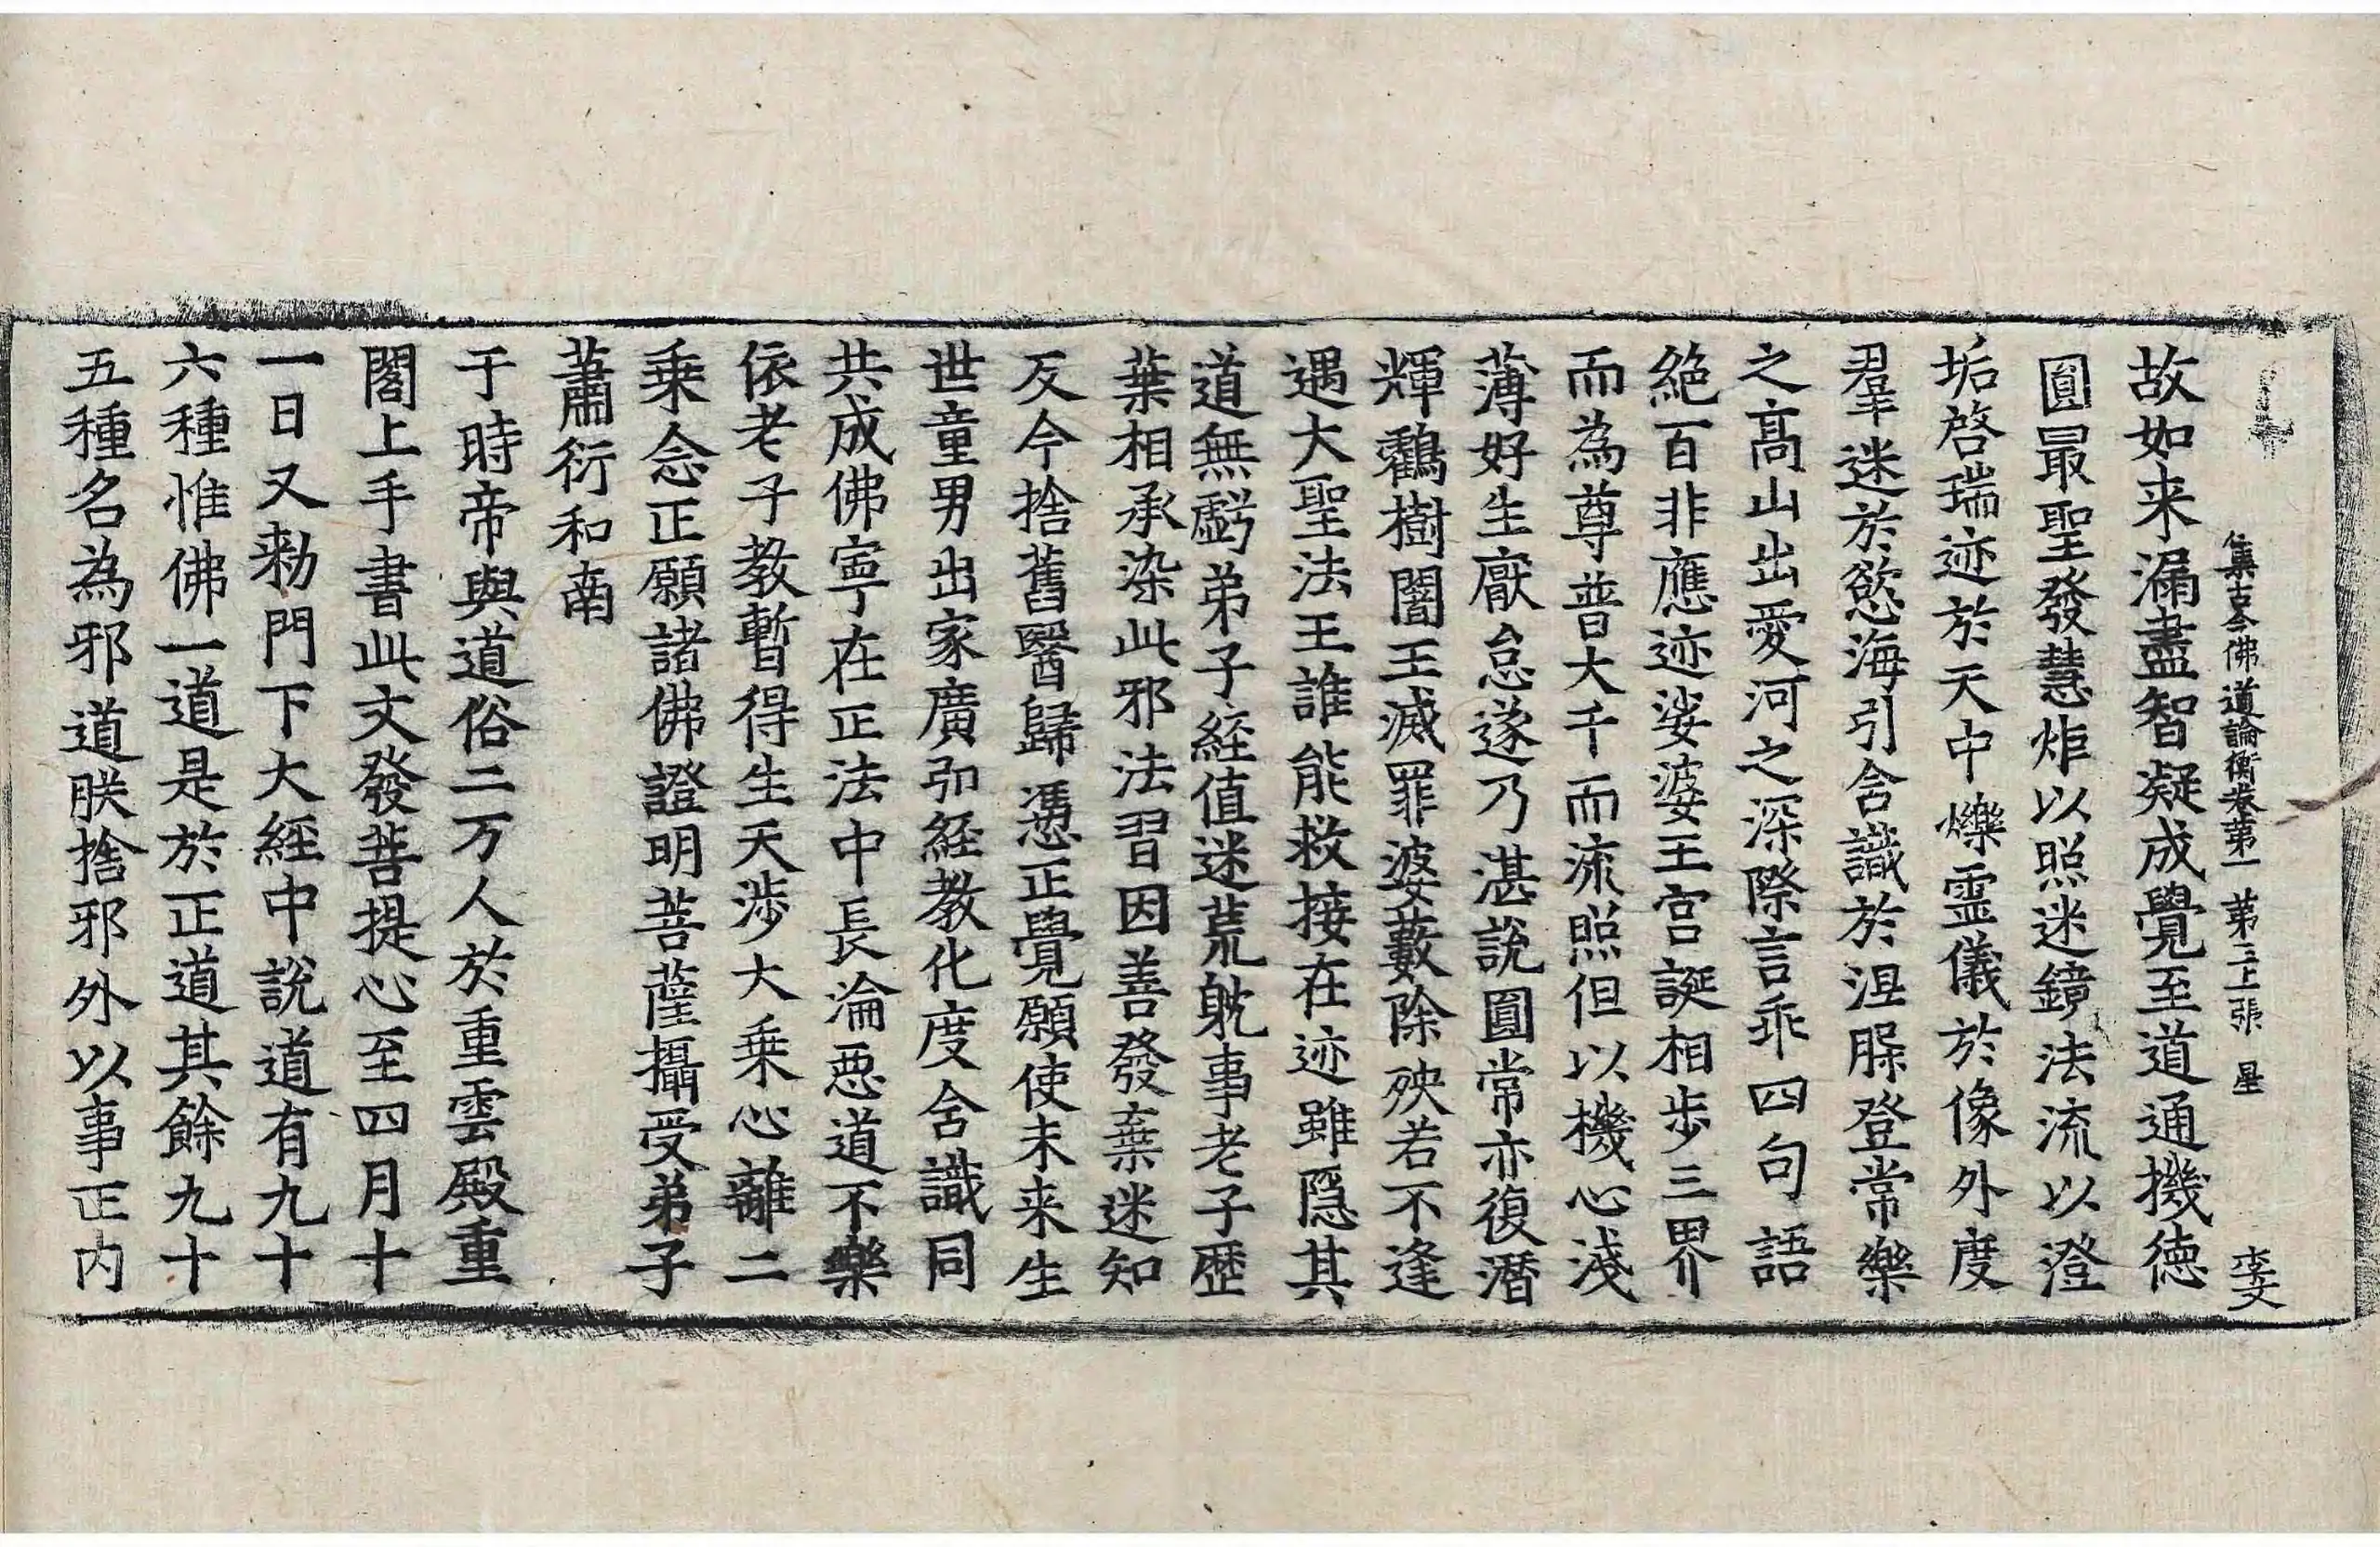 集古今佛道論衡卷第一 第三上張 星 李文
故如来漏盡智凝成覺至道通機德
圓最聖發慧炬以照迷鏡法流以澄
垢啓瑞迹於天中爍霊儀於像外度
羣迷於慾海引含識於涅脲登常樂
之髙山出愛河之深際言乖四句語
絶百非應迹娑婆王宮誕相步三界
而為尊普大千而流照但以機心淺
薄好生厭怠遂乃湛說圓常亦復潛
輝鸖樹闍王滅罪婆藪除殃若不逢
遇大聖法王誰能救接在迹雖隱其
道無虧弟子経值迷荒躭事老子歷
葉相承染此邪法習因善發棄迷知
反今捨舊醫歸憑正覺願使未来生
世童男出家廣弘経教化度含識同
共成佛寧在正法中長淪惡道不樂
依老子教暫得生天涉大乗心離二
乗念正願諸佛證明菩薩攝受弟子
蕭衍和南
于時帝與道俗二万人於重雲殿重
閣上手書此文發菩提心至四月十
一日又勑門下大経中說道有九十
六種惟佛一道是於正道其餘九十
五種名為邪道朕捨邪外以事正内